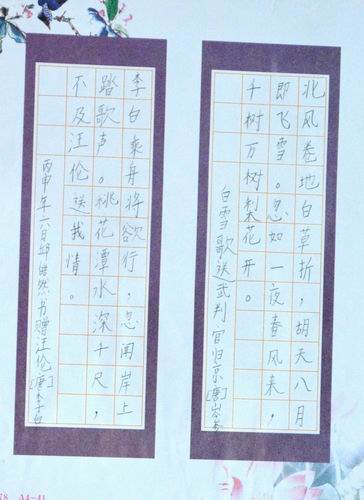 北风卷地白草折，胡天八月
即飞雪。忽如一夜春风来，
千树万树梨花开。
白雪歌送武判官归京[唐]岑参
李白乘舟将欲行，忽闻岸上
踏歌声。桃花潭水深千尺，
不及汪伦送我情。
丙申年六日邱然书赠汪伦[唐]李白
78 A4-41